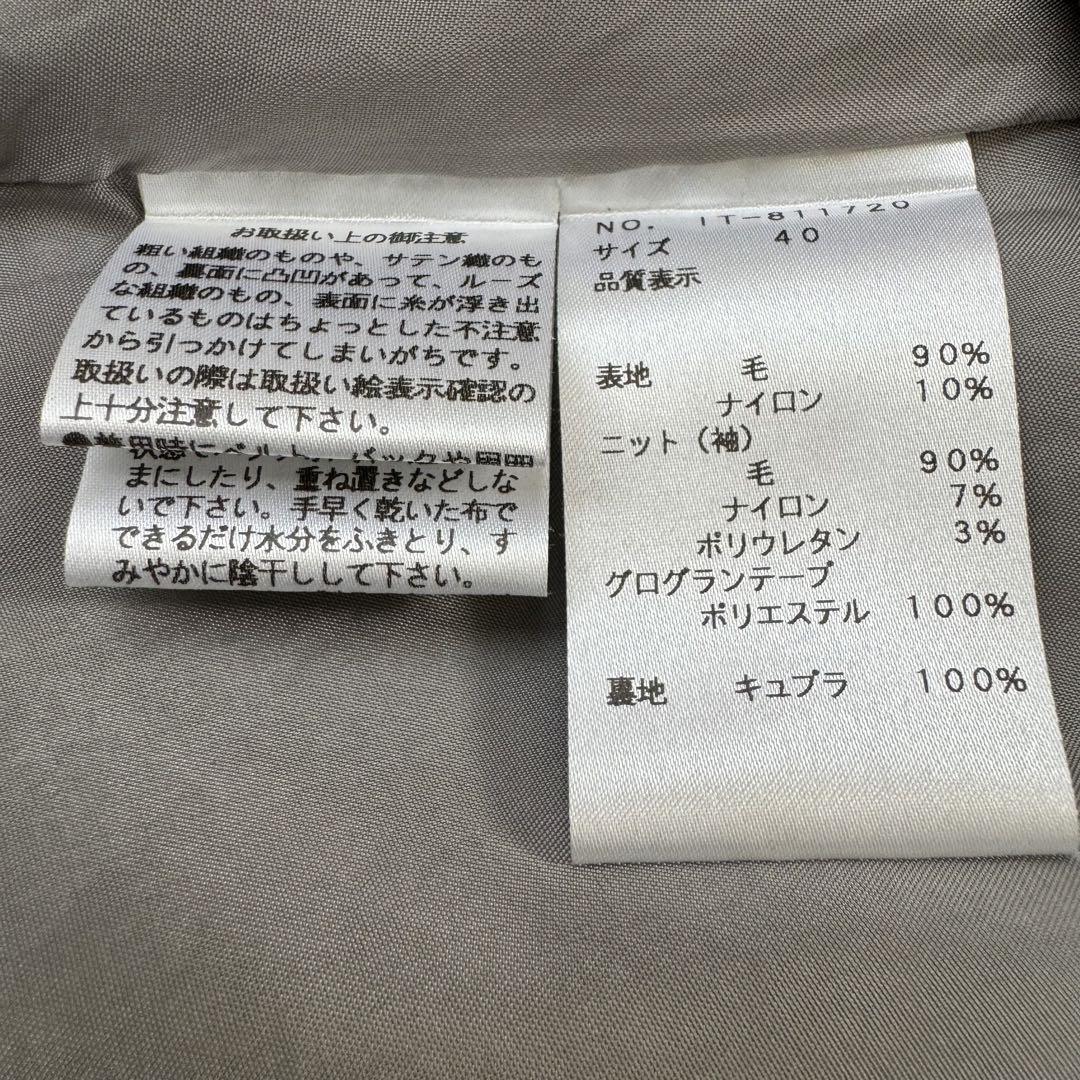 お取扱い上の御注意
粗い組織のものや、サテン織のも
の、裏面に凸凹があって、ルーズ
な組織のもの、表面に糸が浮き出
ているものはちょっとした不注意
から引っかけてしまいがちです。
取扱いの際は取扱い絵表示確認の
上十分注意して下さい。
まにしたり、重ね置きなどしな
いで下さい。手早く乾いた布で
できるだけ水分をふきとり、す
みやかに陰干しして下さい。
NO. IT-811720
サイズ 40
品質表示
表地 毛 90%
ナイロン 10%
ニット(袖)
毛 90%
ナイロン 7%
ポリウレタン 3%
グログランテープ
ポリエステル 100%
裏地 キュプラ 100%